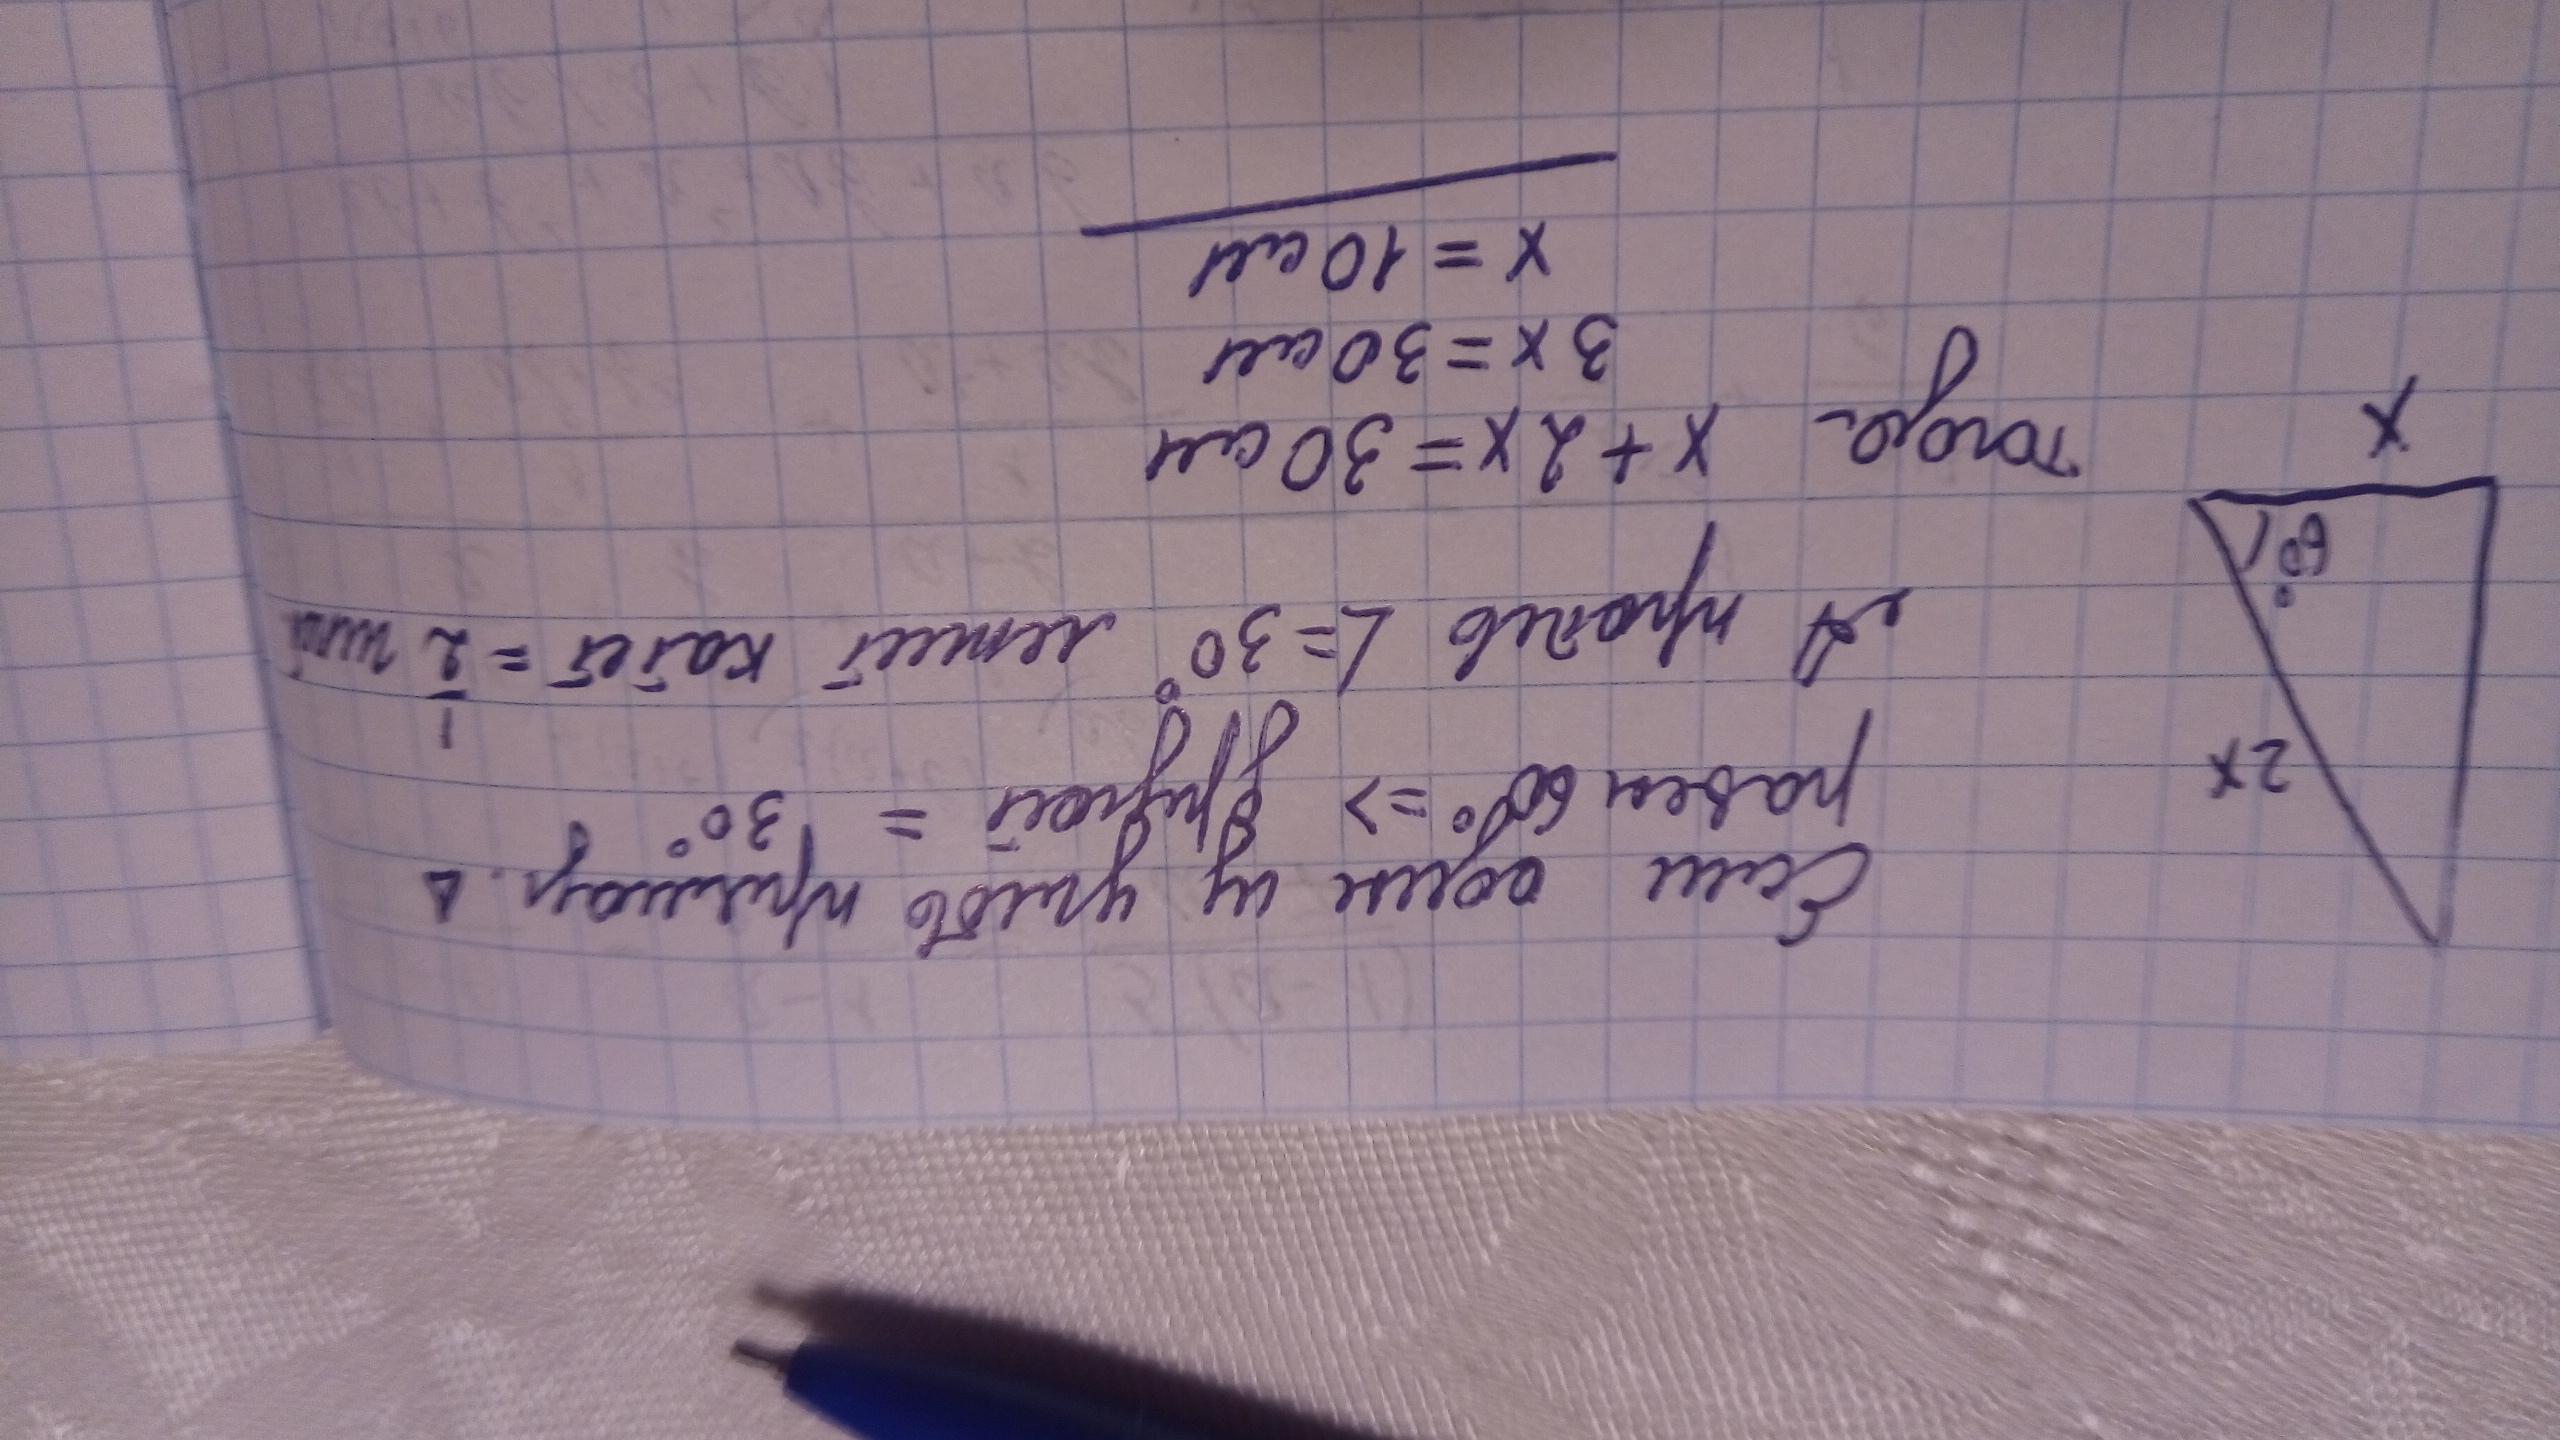 Если один из углов прямоуг. Δ
равен 60° => другой = 30°
А против ∠=30° лежит катет = 1/2 гип
тогда x + 2x = 30 см
3x = 30 см
x = 10 см
2x
60°
x